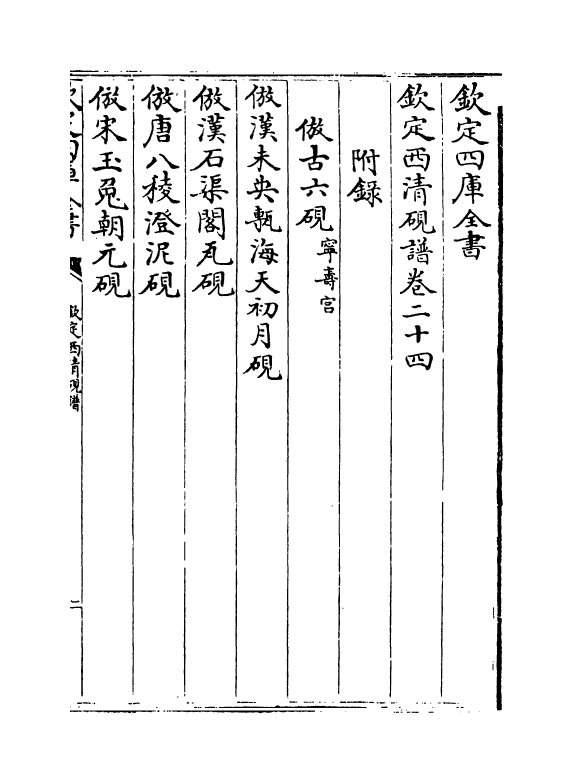 欽定四庫全書
欽定西清硯譜卷二十四
附錄
倣古六硯寧壽宫
倣漢未央甎海天初月硯
倣漢石渠閣瓦硯
倣唐八稜澄泥硯
倣宋玉兔朝元硯
欽定四庫全書
欽定西清硯譜
二